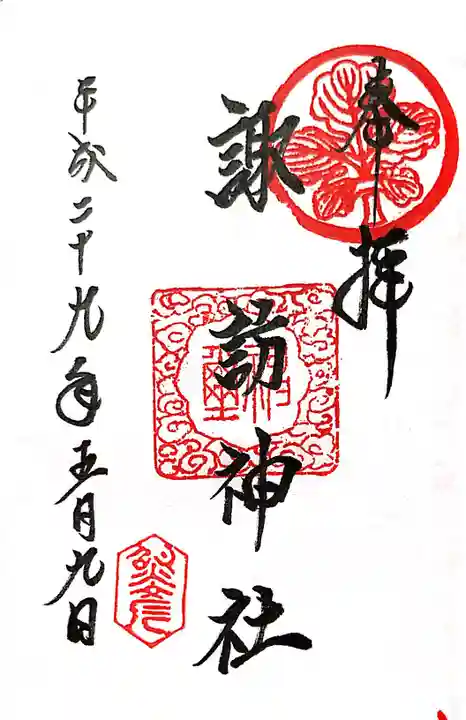 奉拝
諏訪神社
平成二十九年五月九日